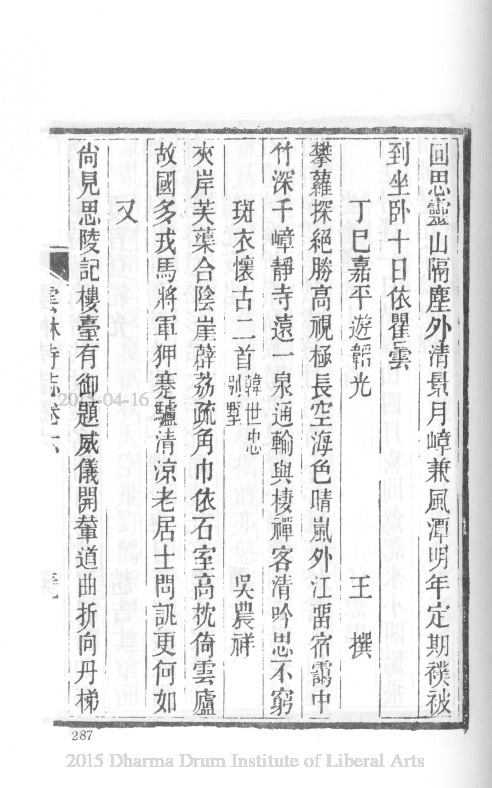 回思靈山隔塵外清景月嶂兼風潭明年定期襆被
到坐卧十日依瞿雲
丁巳嘉平遊韜光 王撰
攀蘿探絕勝高視極長空海色晴嵐外江畱宿靄中
竹深千嶂靜寺遠一泉通輸與棲禪客清吟思不窮
斑衣懷古二首 韓世忠别墅 吳農祥
夾岸芙蕖合陰崖薜荔疏角巾依石室高枕倚雲廬
故國多戎馬將軍狎蹇驢清涼老居士問訊更何如
又
尙見思陵記樓臺有御題威儀開輦道曲折向丹梯
雲林寺志卷六
2015-04-16
287
2015 Dharma Drum Institute of Liberal Arts